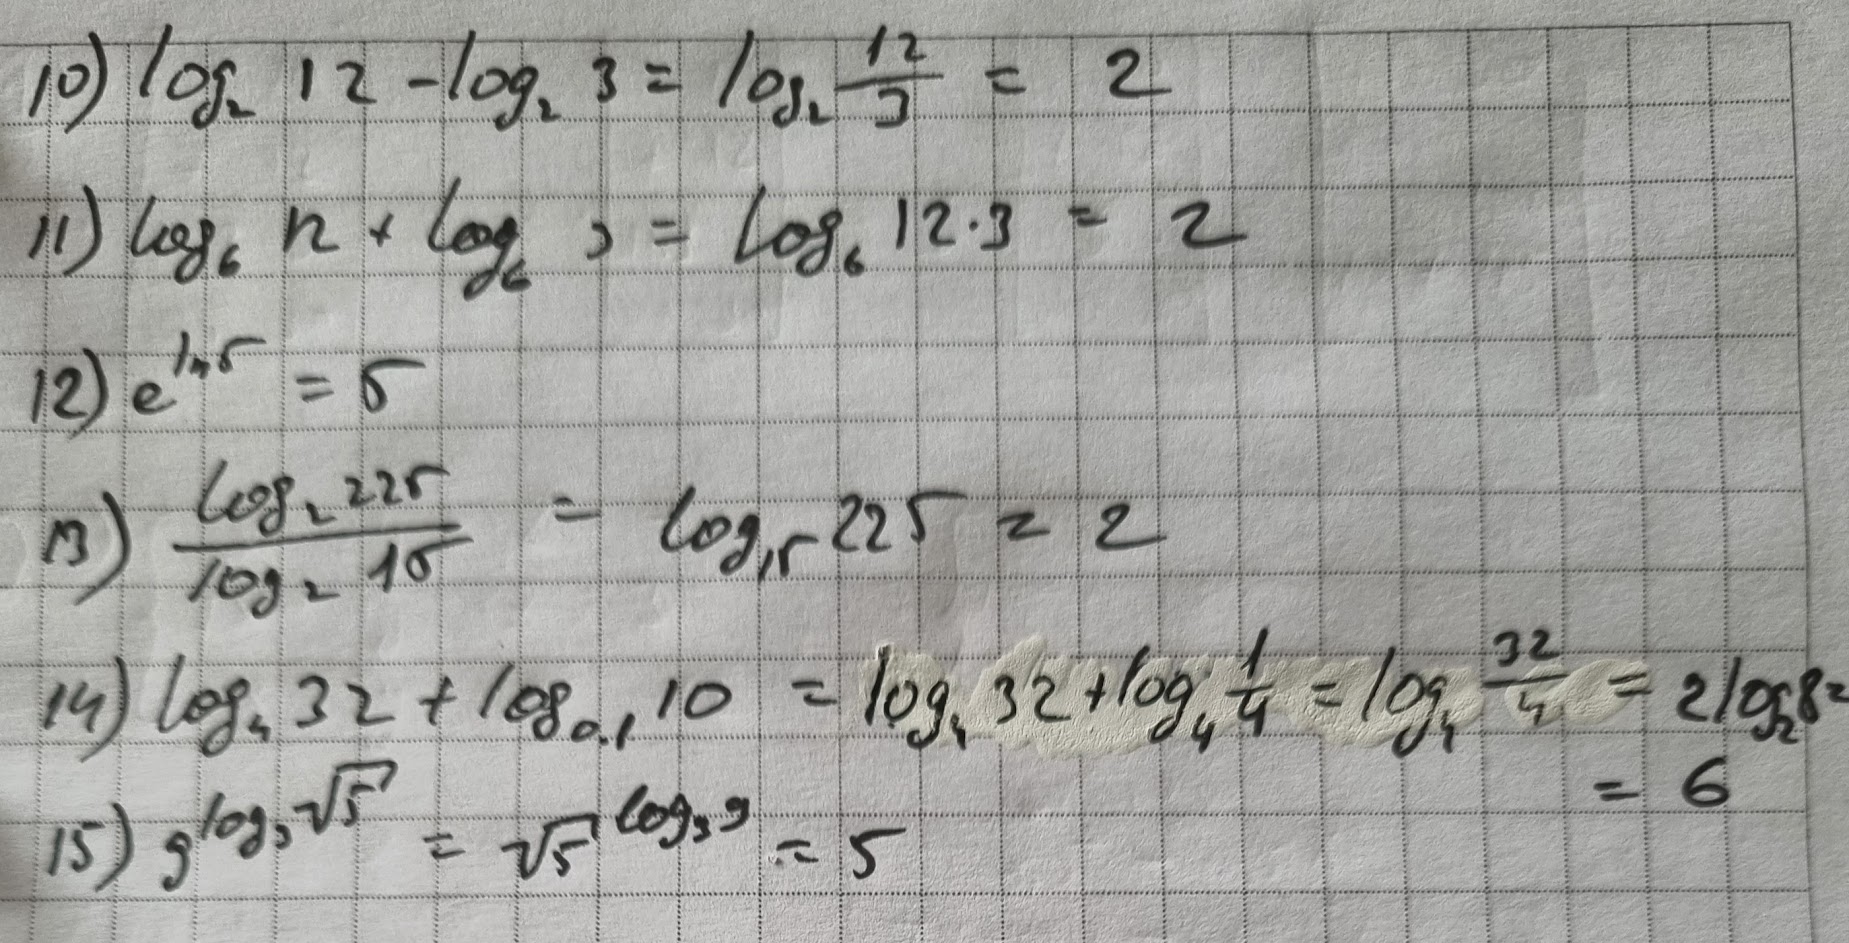 10) log₂ 12 - log₂ 3 = log₂ 12/3 = 2
11) log₆ 12 + log₆ 3 = log₆ 12·3 = 2
12) e^ln5 = 5
13) log₂ 225 / log₂ 15 = log₁₅ 225 = 2
14) log₄ 32 + log₀.₁ 10 = log₄ 32 + log₄ 1/4 = log₄ 32/4 = 2log₂8=
= 6
15) 9^log₃√5 = √5^log₃9 = 5